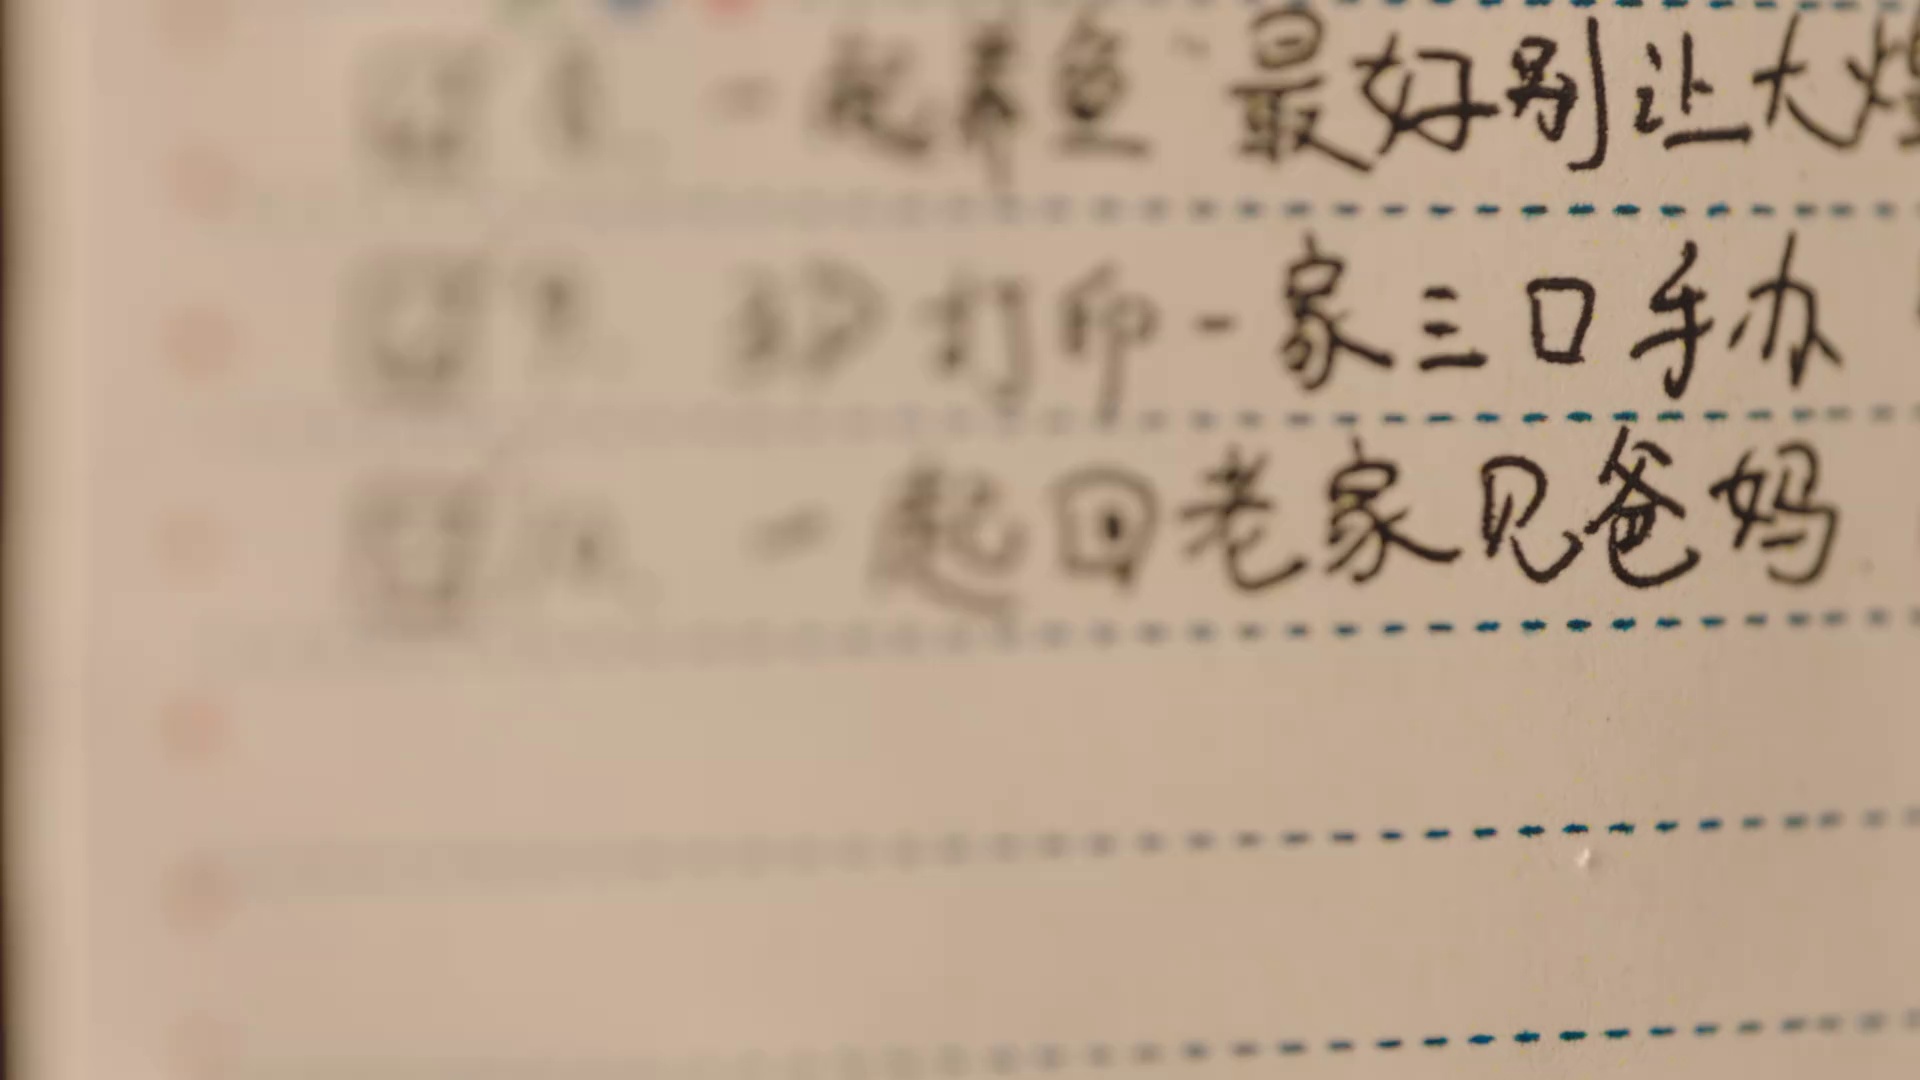 8. 一起养鱼 最好别让大煌
9. 3D打印一家三口手办
10. 一起回老家见爸妈